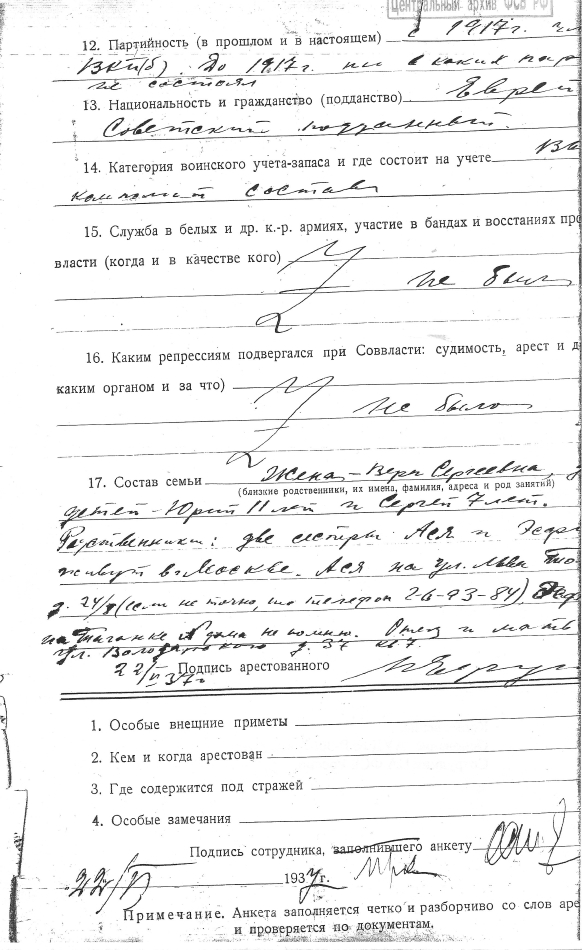 Центральный архив ФСБ РФ
12. Партийность (в прошлом и в настоящем) с 1917г.
ВКП(б). До 1917г. ни в каких пар
не состоял
13. Национальность и гражданство (подданство) Еврей
Советский подданный.
14. Категория воинского учета-запаса и где состоит на учете
состав
15. Служба в белых и др. к.-р. армиях, участие в бандах и восстаниях про
власти (когда и в качестве кого)
не был
16. Каким репрессиям подвергался при Соввласти: судимость, арест и д
каким органом и за что)
не было
17. Состав семьи Жена - Вера Сергеевна,
(близкие родственники, их имена, фамилия, адреса и род занятий)
детей - Юрий 11 лет и Сергей 7 лет.
Родственники: две сестры Ася и Эсфи
живут в Москве. Ася на ул. Льва То
д. 24/ (если не точно, то телефон 2-6-93-84).
на Таганке № дома не помню. Отец и мать
ул. Володарского д. 37 кв 7.
22/VI 37г Подпись арестованного
1. Особые внешние приметы
2. Кем и когда арестован
3. Где содержится под стражей
4. Особые замечания
Подпись сотрудника, заполнившего анкету
22/VI 1937г.
Примечание. Анкета заполняется четко и разборчиво со слов аре
и проверяется по документам.